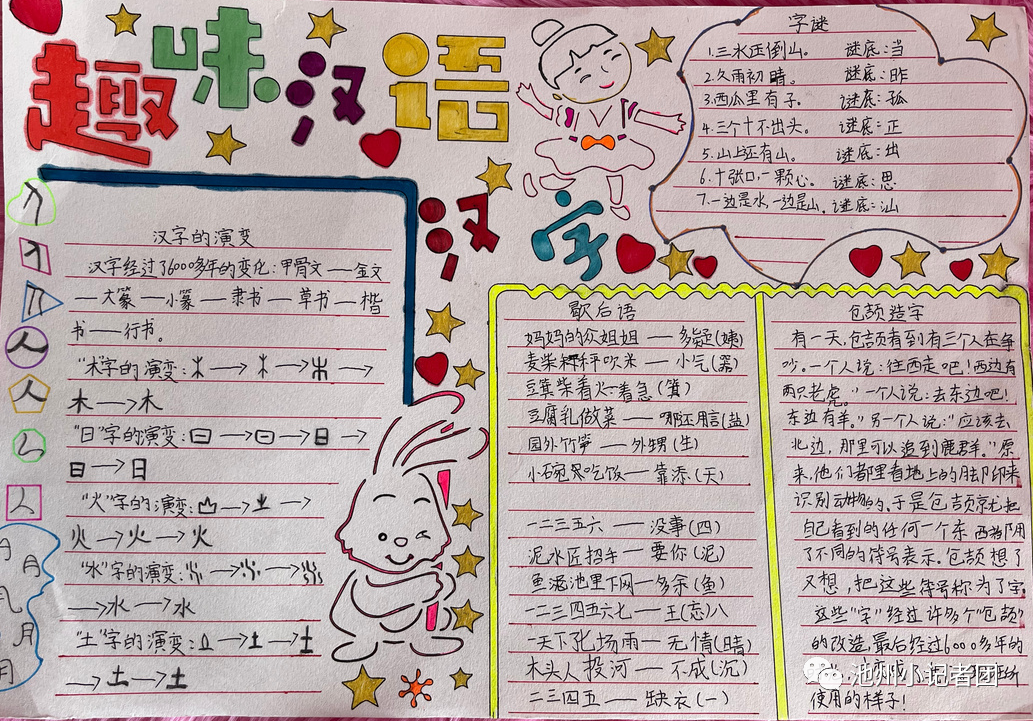 趣味汉语
汉字
字谜
1.三水压倒山。 谜底:当
2.久雨初晴。 谜底:昨
3.西瓜里有子。 谜底:孤
4.三个十不出头。 谜底:正
5.山上还有山。 谜底:出
6.十张口,一颗心。 谜底:思
7.一边是水,一边是山。谜底:汕
汉字的演变
汉字经过了6000多年的变化:甲骨文——金文
—大篆—小篆—隶书—草书—楷
书——行书。
"木"字的演变:
木→木
"日"字的演变:
日→日
"火"字的演变:
火→火→火
"水"字的演变:
→水→水
"土"字的演变:
→土→土
歇后语
妈妈的众姐姐——多疑(姨)
麦柴秆秤吹米——小气(器)
豆箕柴看火—着急(箕)
豆腐乳做菜——哪还用言(盐)
园外竹笋——外甥(生)
小碗儿吃饭——靠添(天)
一二三五六——没事(四)
泥水匠招手——要你(泥)
鱼池里下网—多余(鱼)
一二三四五六七—王(忘)八
一天下几场雨—无情(晴)
木头人投河—不成(沉)
二三四五—缺衣(一)
仓颉造字
有一天,仓颉看到有三个人在争
吵。一个人说:往西走吧!西边有
两只老虎。"一个人说:去东边吧!
东边有羊。"另一个人说:"应该去
北边,那里可以追到鹿群。"原
来,他们都里看地上的脚印来
识别动物的。于是仓颉就把
自己看到的任何一个东西都用
了不同的符号表示。仓颉想了
又想,把这些符号称为了字,
这些"字"经过许多个"仓颉"
的改造,最后经过6000多年的
使用的样子!
池州小记者团
人
人
人
月
月
月
月